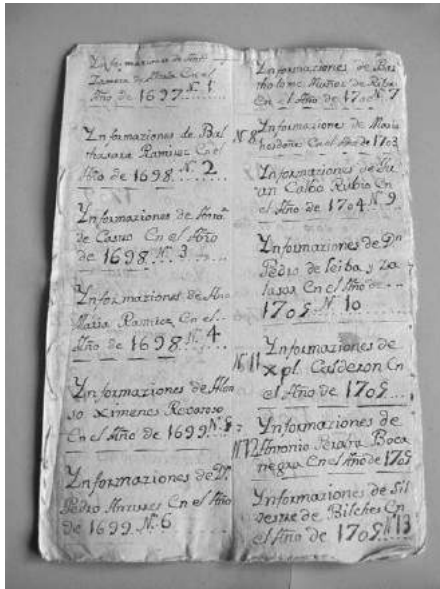 Ynformaziones de Ant
Zamora de Alcala Cn el
Año de 1697 N. 1
Ynformaziones de Bal
thasara Ramirez Cn el
Año de 1698 N. 2
Ynformaziones de
de Castro Cn el Año
de 1698. N. 3
Ynformaziones de Ana
Maria Ramirez Cn el
Año de 1698 N. 4
Ynformaziones de Alon
so Ximenes Recoroso
Cn el Año de 1699 N. 5
Ynformaziones de Dn
Pedro Cn el Año
de 1699 N. 6
Ynformaziones de Bar
tholome Muñoz de Ribe
Cn el Año de 1700 N. 7
N. 8 Ynformaziones de Maria
Cn el Año de 1703
Ynformaziones de Ju
an Calbo Rubio Cn
el Año de 1704 N. 9
Ynformaziones de Dn
Pedro de leiba y Za
Cn el Año de
1705 N. 10
N. 11 Ynformaziones de
Xpl. Calderon Cn
el Año de 1705
Ynformaziones de
N. 12 Antonio Boca
negra Cn el Año de 1705
Ynformaziones de Sil
vestre de Bilches Cn
el Año de 1705 N. 13